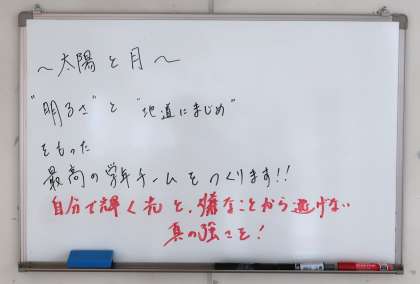 ～太陽と月～
"明るさ"と"地道にまじめ"
をもった
最高の学年チームをつくります!!
自分で輝く光と、嫌なことから逃げない
真の強さを!